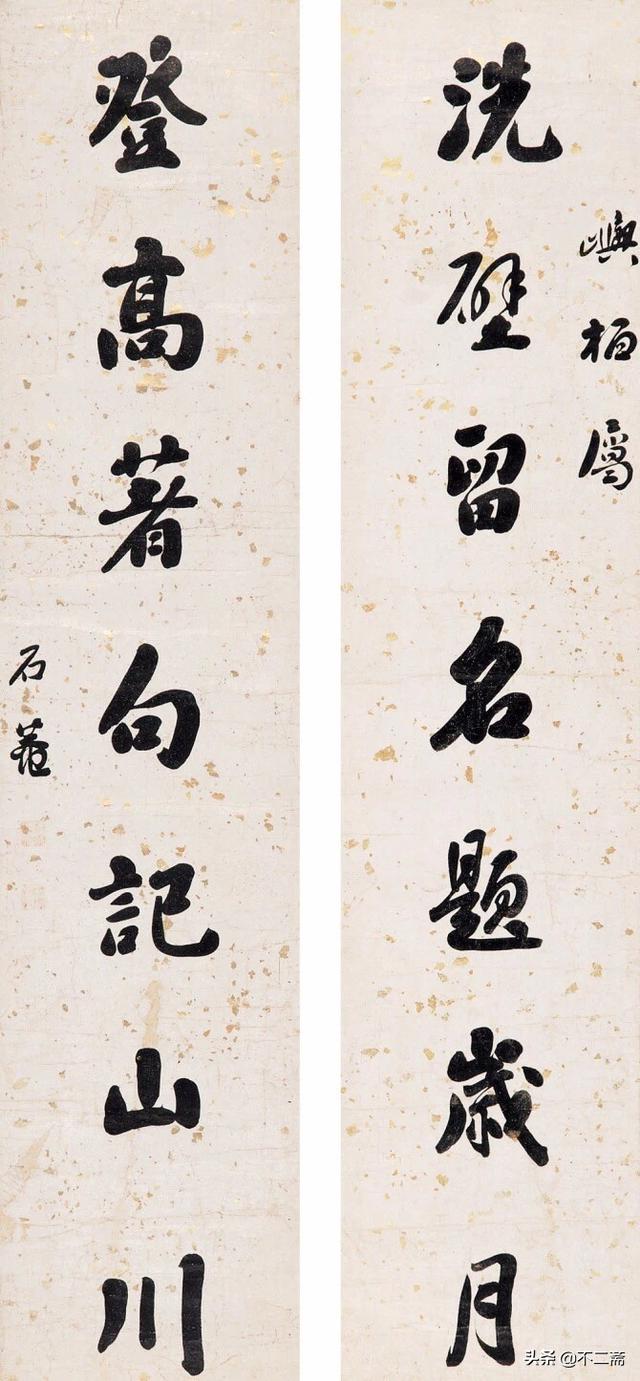 嶼栢屬
洗壁留名題歲月
登高著句記山川
石菴
头条 @不二斋